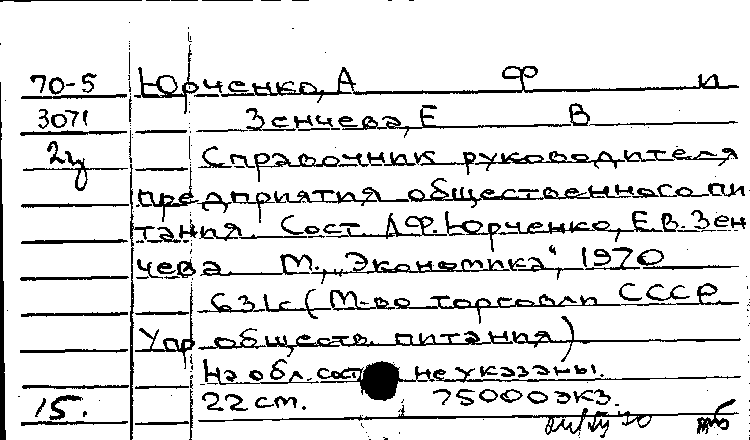 70-5 Юрченко, А Ф и
3071 Зенчева, Е В
2ц Справочник руководителя
предприятия общественного пи
тания. Сост. А.Ф. Юрченко, Е.В. Зен
чева. М., „Экономика“, 1970
631с (М-во торговли СССР.
Упр. обществ. питания)
На обл. сост. не указаны.
15. 22 см. 75000 экз.